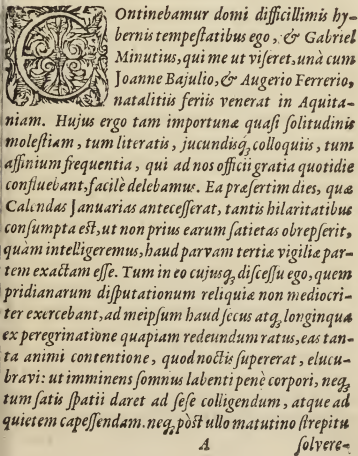 COntinebamur domi difficillimis hy-
bernis tempestatibus ego, & Gabriel
Minutius, qui me ut viseret, unà cum
Joanne Bajulio, & Augerio Ferrerio,
natalitiis feriis venerat in Aquita-
niam. Hujus ergo tam importunæ quasi solitudinis
molestiam, tum literatis, jucundisq́; colloquiis, tum
affinium frequentia, qui ad nos officii gratia quotidie
confluebant, facilè delebamus. Ea præsertim dies, quæ
Calendas Januarias antecesserat, tantis hilaritatibus
consumpta est, ut non prius earum satietas obrepserit,
quàm intelligeremus, haud parvam tertiæ vigiliæ par-
tem exactam esse. Tum in eo cujusq́; discessu ego, quem
pridianarum disputationum reliquiæ non mediocri-
ter exercebant, ad meipsum haud secus atq́; longinqua
ex peregrinatione quapiam redeundum ratus, eas tan-
ta animi contentione, quod noctis supererat, elucu-
bravi: ut imminens somnus labenti penè corpori, neq́;
tum satis spatii daret ad sese colligendum, atque ad
quietem capessendam. neq́; pòst ullo matutino strepitu
A solvere-